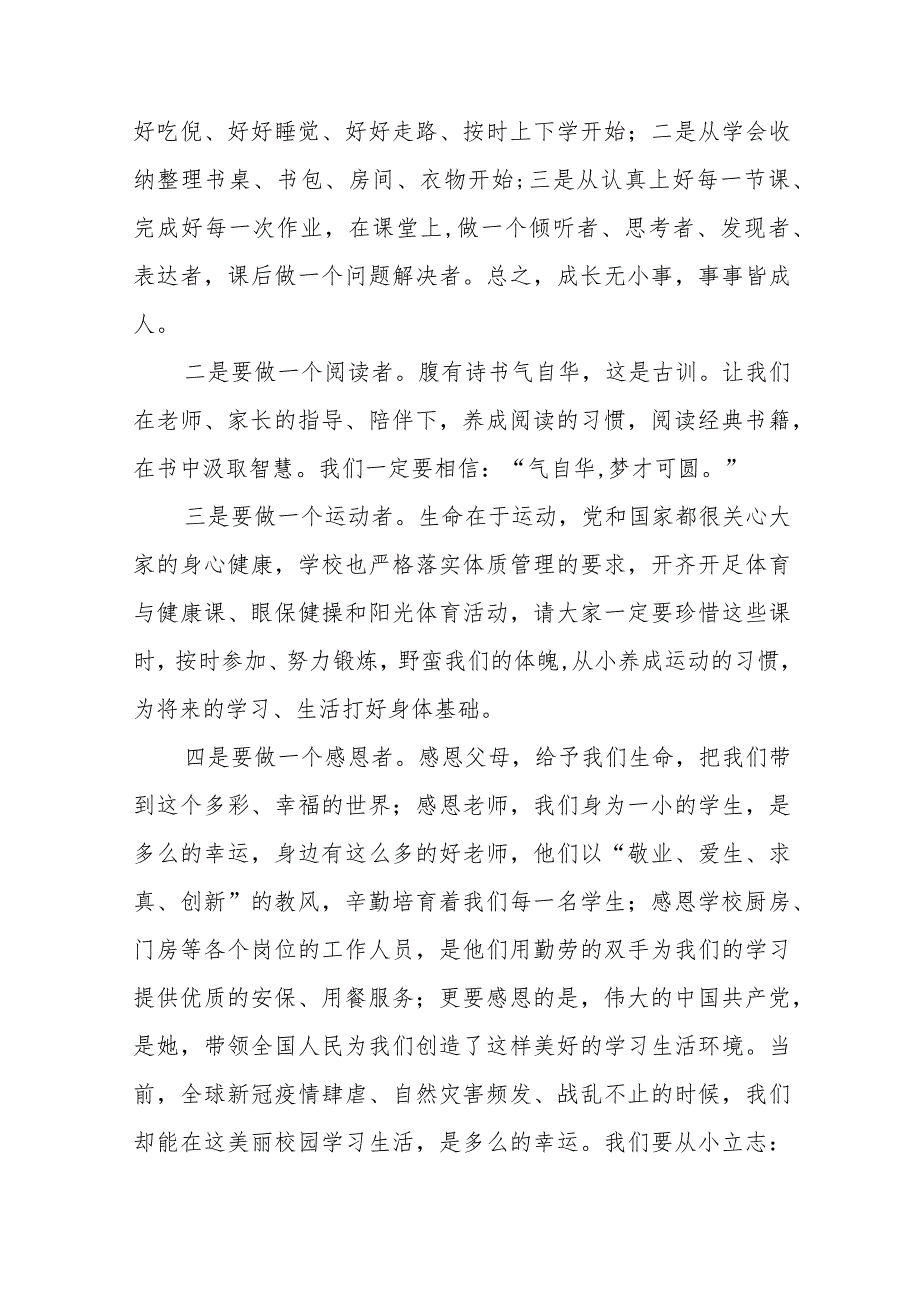 好吃倪、好好睡觉、好好走路、按时上下学开始；二是从学会收
纳整理书桌、书包、房间、衣物开始;三是从认真上好每一节课、
完成好每一次作业，在课堂上,做一个倾听者、思考者、发现者、
表达者，课后做一个问题解决者。总之，成长无小事，事事皆成
人。
二是要做一个阅读者。腹有诗书气自华，这是古训。让我们
在老师、家长的指导、陪伴下，养成阅读的习惯，阅读经典书籍，
在书中汲取智慧。我们一定要相信：“气自华,梦才可圆。”
三是要做一个运动者。生命在于运动，党和国家都很关心大
家的身心健康，学校也严格落实体质管理的要求，开齐开足体育
与健康课、眼保健操和阳光体育活动，请大家一定要珍惜这些课
时，按时参加、努力锻炼，野蛮我们的体魄,从小养成运动的习惯，
为将来的学习、生活打好身体基础。
四是要做一个感恩者。感恩父母，给予我们生命，把我们带
到这个多彩、幸福的世界；感恩老师，我们身为一小的学生，是
多么的幸运，身边有这么多的好老师，他们以“敬业、爱生、求
真、创新”的教风，辛勤培育着我们每一名学生；感恩学校厨房、
门房等各个岗位的工作人员，是他们用勤劳的双手为我们的学习
提供优质的安保、用餐服务；更要感恩的是，伟大的中国共产党，
是她，带领全国人民为我们创造了这样美好的学习生活环境。当
前，全球新冠疫情肆虐、自然灾害频发、战乱不止的时候，我们
却能在这美丽校园学习生活，是多么的幸运。我们要从小立志：